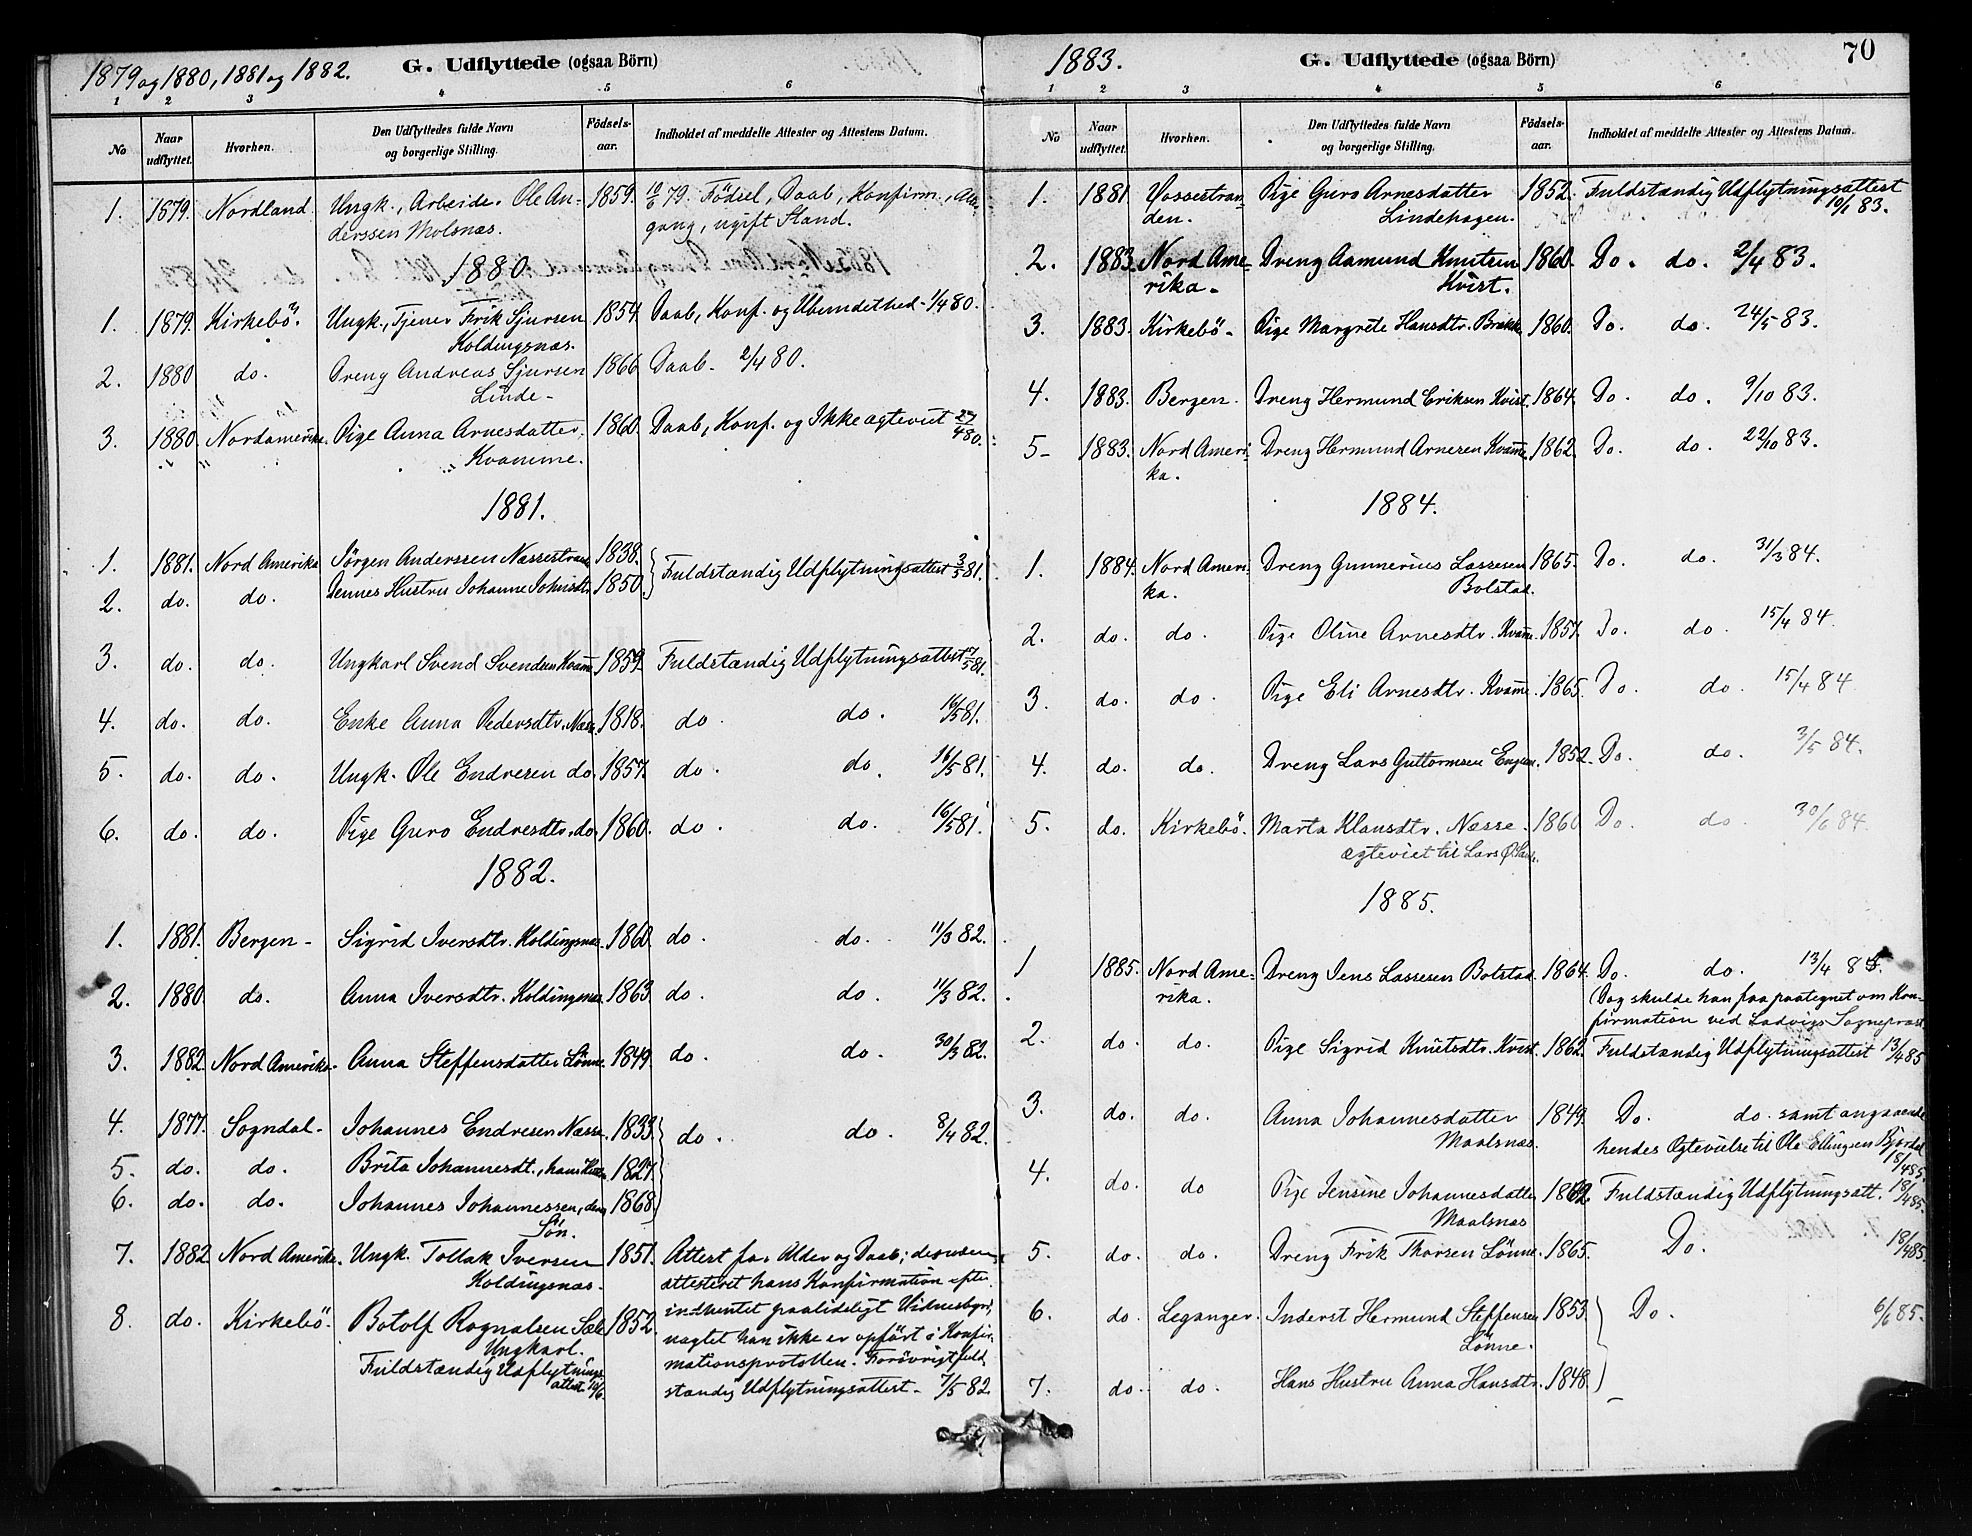 1879 og 1880, 1881 og 1882. G. Udflyttede (ogsaa Börn)
1 2 3 4 5 6
No Naar udflyttet. Hvorhen. Den Udflyttedes fulde Navn og borgerlige Stilling. Födsels-aar. Indholdet af meddelte Attester og Attestens Datum.
1. 1879. Nordland. Ungk., Arbeider Ole An- 1859. 10/9 79. Födsel, Daab, Konfirm., Alter-
derssen Molsnæs. gang, ugift Stand.
1880.
1. 1879. Kirkebö. Ungk., Tjener Erik Sjursen 1854. Daab, Konf. og Ubundethed - 1/4 80.
Koldingsnæs.
2. 1880 do. Dreng Andreas Sjursen 1866 Daab. 2/4 80.
Linde -
3. 1880. Nordamerika. Pige Anna Arnesdatter, 1860. Daab, Konf. og Ikke ægteviet 27/4 80.
Kvamme.
1881.
1. 1881. Nord Amerika Jörgen Anderssen Næssestrand 1838. Fuldstændig Udflytningsattest 3/5 81.
2. do. do. Dennes Hustru Johanne Johnsdtr. 1850.
3. do. do. Ungkarl Svend Svendsen Kvamme 1859. Fuldstændig Udflytningsattest 7/5 81.
4. do. do. Enke Anna Pedersdtr. Næsse. 1818. do. do. 16/5 81.
5. do. do. Ungk. Ole Endresen do. 1857. do. do. 16/5 81.
6. do. do. Pige Guro Endresdtr. do. 1860. do. do. 16/5 81.
1882.
1. 1881. Bergen - Sigrid Iversdtr. Koldingsnæs. 1860. do. do. 11/3 82.
2. 1880. do. Anna Iversdtr. Koldingsnæs 1863. do. do. 11/3 82.
3. 1882. Nord Amerika. Anna Steffensdatter Lönne. 1849. do. do. 30/3 82.
4. 1877. Sogndal - Johannes Endresen Næsse. 1833. do. do. 8/4 82.
5. do. do. Brita Johannesdt., hans Hustru 1827.
6. do. do. Johannes Johannessen, deres 1868.
Sön.
7. 1882 Nord Amerika. Ungk. Tollak Iversen 1851. Attest for Alder og Daab; desuden
Koldingsnæs. attesteret hans Konfirmation efter
8. do. Kirkebö. Botolf Rognalsen Sæle 1852. indhentet paalideligt Vidnesbyrd,
Ungkarl. uagtet han ikke er opfört i Konfir-
Fuldstændig Udflytnings- mationsprotokollen. Forövrigt fuld-
attest stændig Udflytningsattest - 7/5 82.
1883. G. Udflyttede (ogsaa Börn) 70
1 2 3 4 5 6
No Naar udflyttet. Hvorhen. Den Udflyttedes fulde Navn og borgerlige Stilling. Födsels-aar. Indholdet af meddelte Attester og Attestens Datum.
1. 1881 Vossestran- Pige Guro Arnesdatter 1852. Fuldstændig Udflytningsattest
den. Lindehagen. 10/1 83.
2. 1883 Nord Ame- Dreng Aamund Knutsen 1860. Do. do. 2/4 83.
rika. Kvist.
3. 1883. Kirkebö - Pige Margrete Hansdtr. Brekke 1860. Do. do. 24/5 83.
4. 1883. Bergen. Dreng Hermund Eriksen Kvist. 1864. Do. do. 9/10 83.
5 - 1883. Nord Ameri- Dreng Hermund Arnesen Kvamme. 1862. Do. do. 22/10 83.
ka.
1884.
1. 1884. Nord Ameri- Dreng Gunnerius Lassesen 1865. Do. do. 31/3 84.
ka. Bolstad.
2. do. do. Pige Oline Arnesdtr. Kvamme. 1857. Do. do. 15/4 84.
3. do. do. Pige Eli Arnesdtr. Kvamme. 1865. Do. do. 15/4 84
4. do. do. Dreng Lars Guttormsen Engum. 1852. Do. do. 3/5 84.
5. do. Kirkebö. Marta Klausdtr. Næsse. 1860 Do. do. 30/6 84.
ægteviet til Lars
1885.
1 1885. Nord Ame- Dreng Jens Lassesen Bolstad. 1864. Do. do. 13/4 85.
rika. (Dog skulde han faa paategnet om Kon-
firmation ved Ladvigs Sognepræst
2. do. do. Pige Sigrid Knutsdtr. Kvist. 1862. Fuldstændig Udflytningsattest 13/4 85
3. do. do. Anna Johannesdatter 1849. Do. do. samt angaaende
Maalsnæs. hendes Ægtevielse til Ole Ellingsen Bjordal
18/4 85.
4. do. do Pige Jensine Johannesdatter 1862. Fuldstændig Udflytningsatt. 18/4 85.
Maalsnæs
5. do. do. Dreng Erik Thorsen Lönne. 1865. Do. 18/4 85.
6. do. Leganger. Inderst Hermund Steffensen 1853. Do. 6/6 85.
Lönne.
7. do. do. Hans Hustru Anna Hansdtr. 1848.